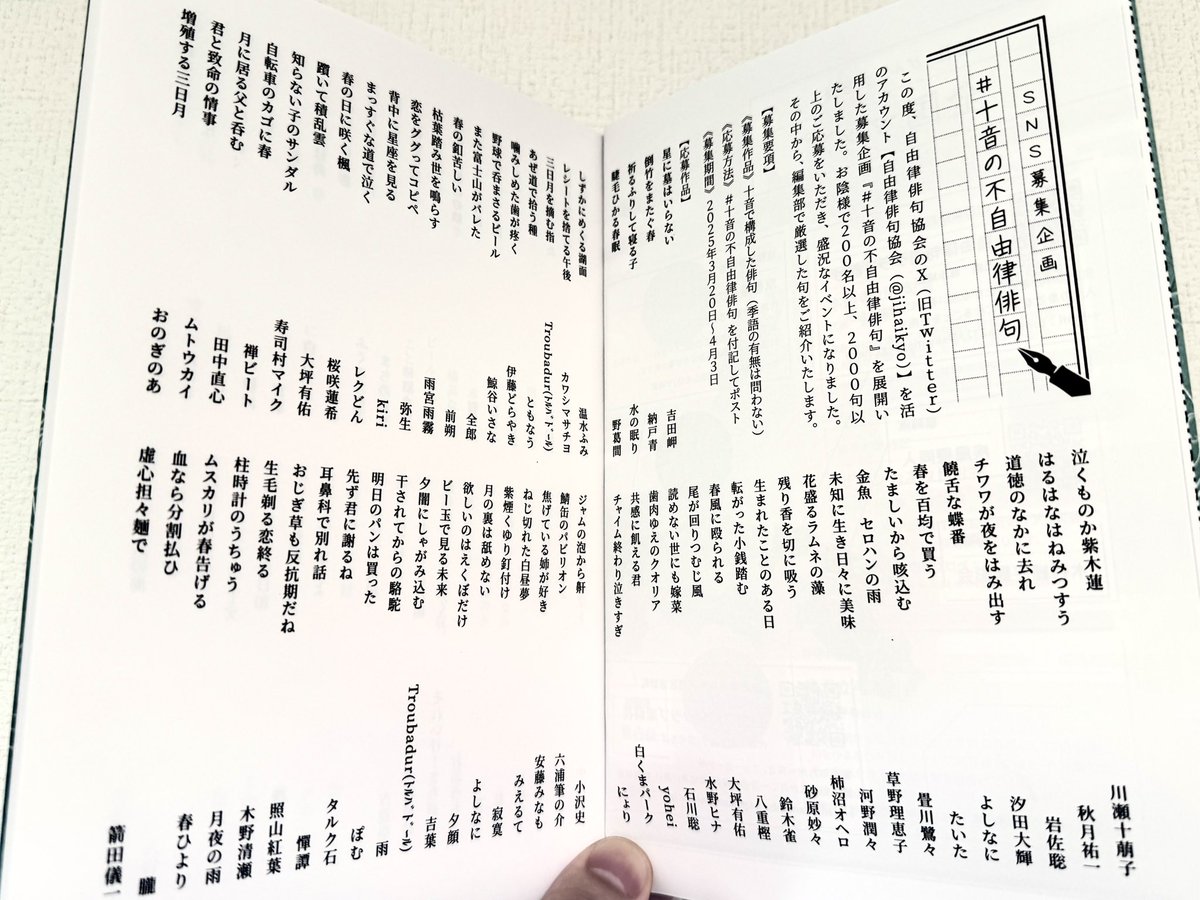 SNS募集企画
#十音の不自由律俳句
この度、自由律俳句協会のX（旧Twitter）
のアカウント【自由律俳句協会（@jihaikyo）】を活
用した募集企画『#十音の不自由律俳句』を展開い
たしました。お陰様で200名以上、2000句以
上のご応募をいただき、盛況なイベントになりました。
その中から、編集部で厳選した句をご紹介いたします。
【募集要項】
《募集作品》十音で構成した俳句（季語の有無は問わない）
《応募方法》#十音の不自由律俳句 を付記してポスト
《募集期間》2025年3月20日〜4月3日
【応募作品】
星に墓はいらない 吉田岬
倒竹をまたぐ春 納戸青
祈るふりして寝る子 水の眠り
睫毛ひかる春眠 野葛間
泣くものか紫木蓮 川瀬十萌子
はるはなはねみつすう 秋月祐一
道徳のなかに去れ 岩佐聡
チワワが夜をはみ出す 汐田大輝
饒舌な蝶番 よしなに
春を百均で買う たいた
たましいから咳込む 畳川鷺々
金魚　セロハンの雨 草野理恵子
未知に生き日々に美味 河野潤々
花盛るラムネの藻 柿沼オヘロ
残り香を切に吸う 砂原妙々
生まれたことのある日 鈴木雀
転がった小銭踏む 八重樫
春風に殴られる 大坪有佑
尾が回りつむじ風 水野ヒナ
読めない世にも嫁菜 石川聡
歯肉ゆえのクオリア yohei
共感に飢える君 白くまパーク
チャイム終わり泣きすぎ にょり
しずかにめくる湖面 温水ふみ
レシートを捨てる午後 カワシマサチヨ
三日月を摘む指 Troubadur(ﾄﾙﾊﾞﾄﾞｰﾙ)
あぜ道で拾う種 ともなう
噛みしめた歯が疼く 伊藤どらやき
野球で呑まさるビール 鯨谷いさな
また富士山がバレた 全郎
春の釦苦しい 前朔
枯葉踏み世を鳴らす 雨宮雨霧
恋をググってコピペ 弥生
背中に星座を見る kiri
まっすぐな道で泣く レクどん
春の日に咲く楓 桜咲蓮希
躓いて積乱雲 大坪有佑
知らない子のサンダル 寿司村マイク
自転車のカゴに春 禅ビート
月に居る父と呑む 田中直心
君と致命の情事 ムトウカイ
増殖する三日月 おのぎのあ
ジャムの泡から鼾 小沢史
鯖缶のパビリオン 六浦筆の介
焦げている姉が好き 安藤みなも
ねじ切れた白昼夢 みえるて
紫煙くゆり釘付け 寂寞
月の裏は舐めない よしなに
欲しいのはえくぼだけ 夕顔
ビー玉で見る未来 吉葉
夕闇にしゃがみ込む Troubadur(ﾄﾙﾊﾞﾄﾞｰﾙ)
干されてからの駱駝 雨
明日のパンは買った ぽむ
先ず君に謝るね タルク石
耳鼻科で別れ話 憚譚
おじぎ草も反抗期だね 照山紅葉
生毛剃る恋終る 木野清瀬
柱時計のうちゅう 月夜の雨
ムスカリが春告げる 春ひより
血なら分割払ひ 朧
虚心担々麺で 箭田儀一